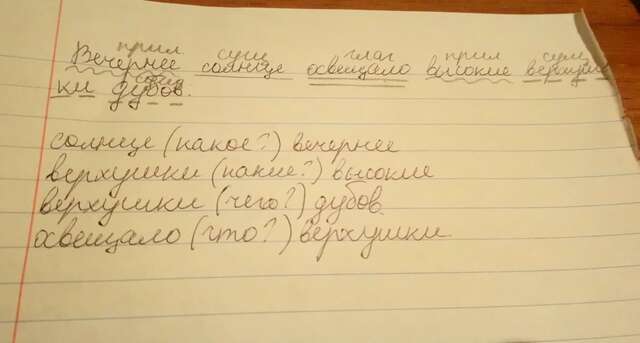 прил сущ глаг прил сущ
Вечернее солнце освещало высокие верхуш-
сущ
ки дубов.
солнце (какое?) вечернее
верхушки (какие?) высокие
верхушки (чего?) дубов.
освещало (что?) верхушки.